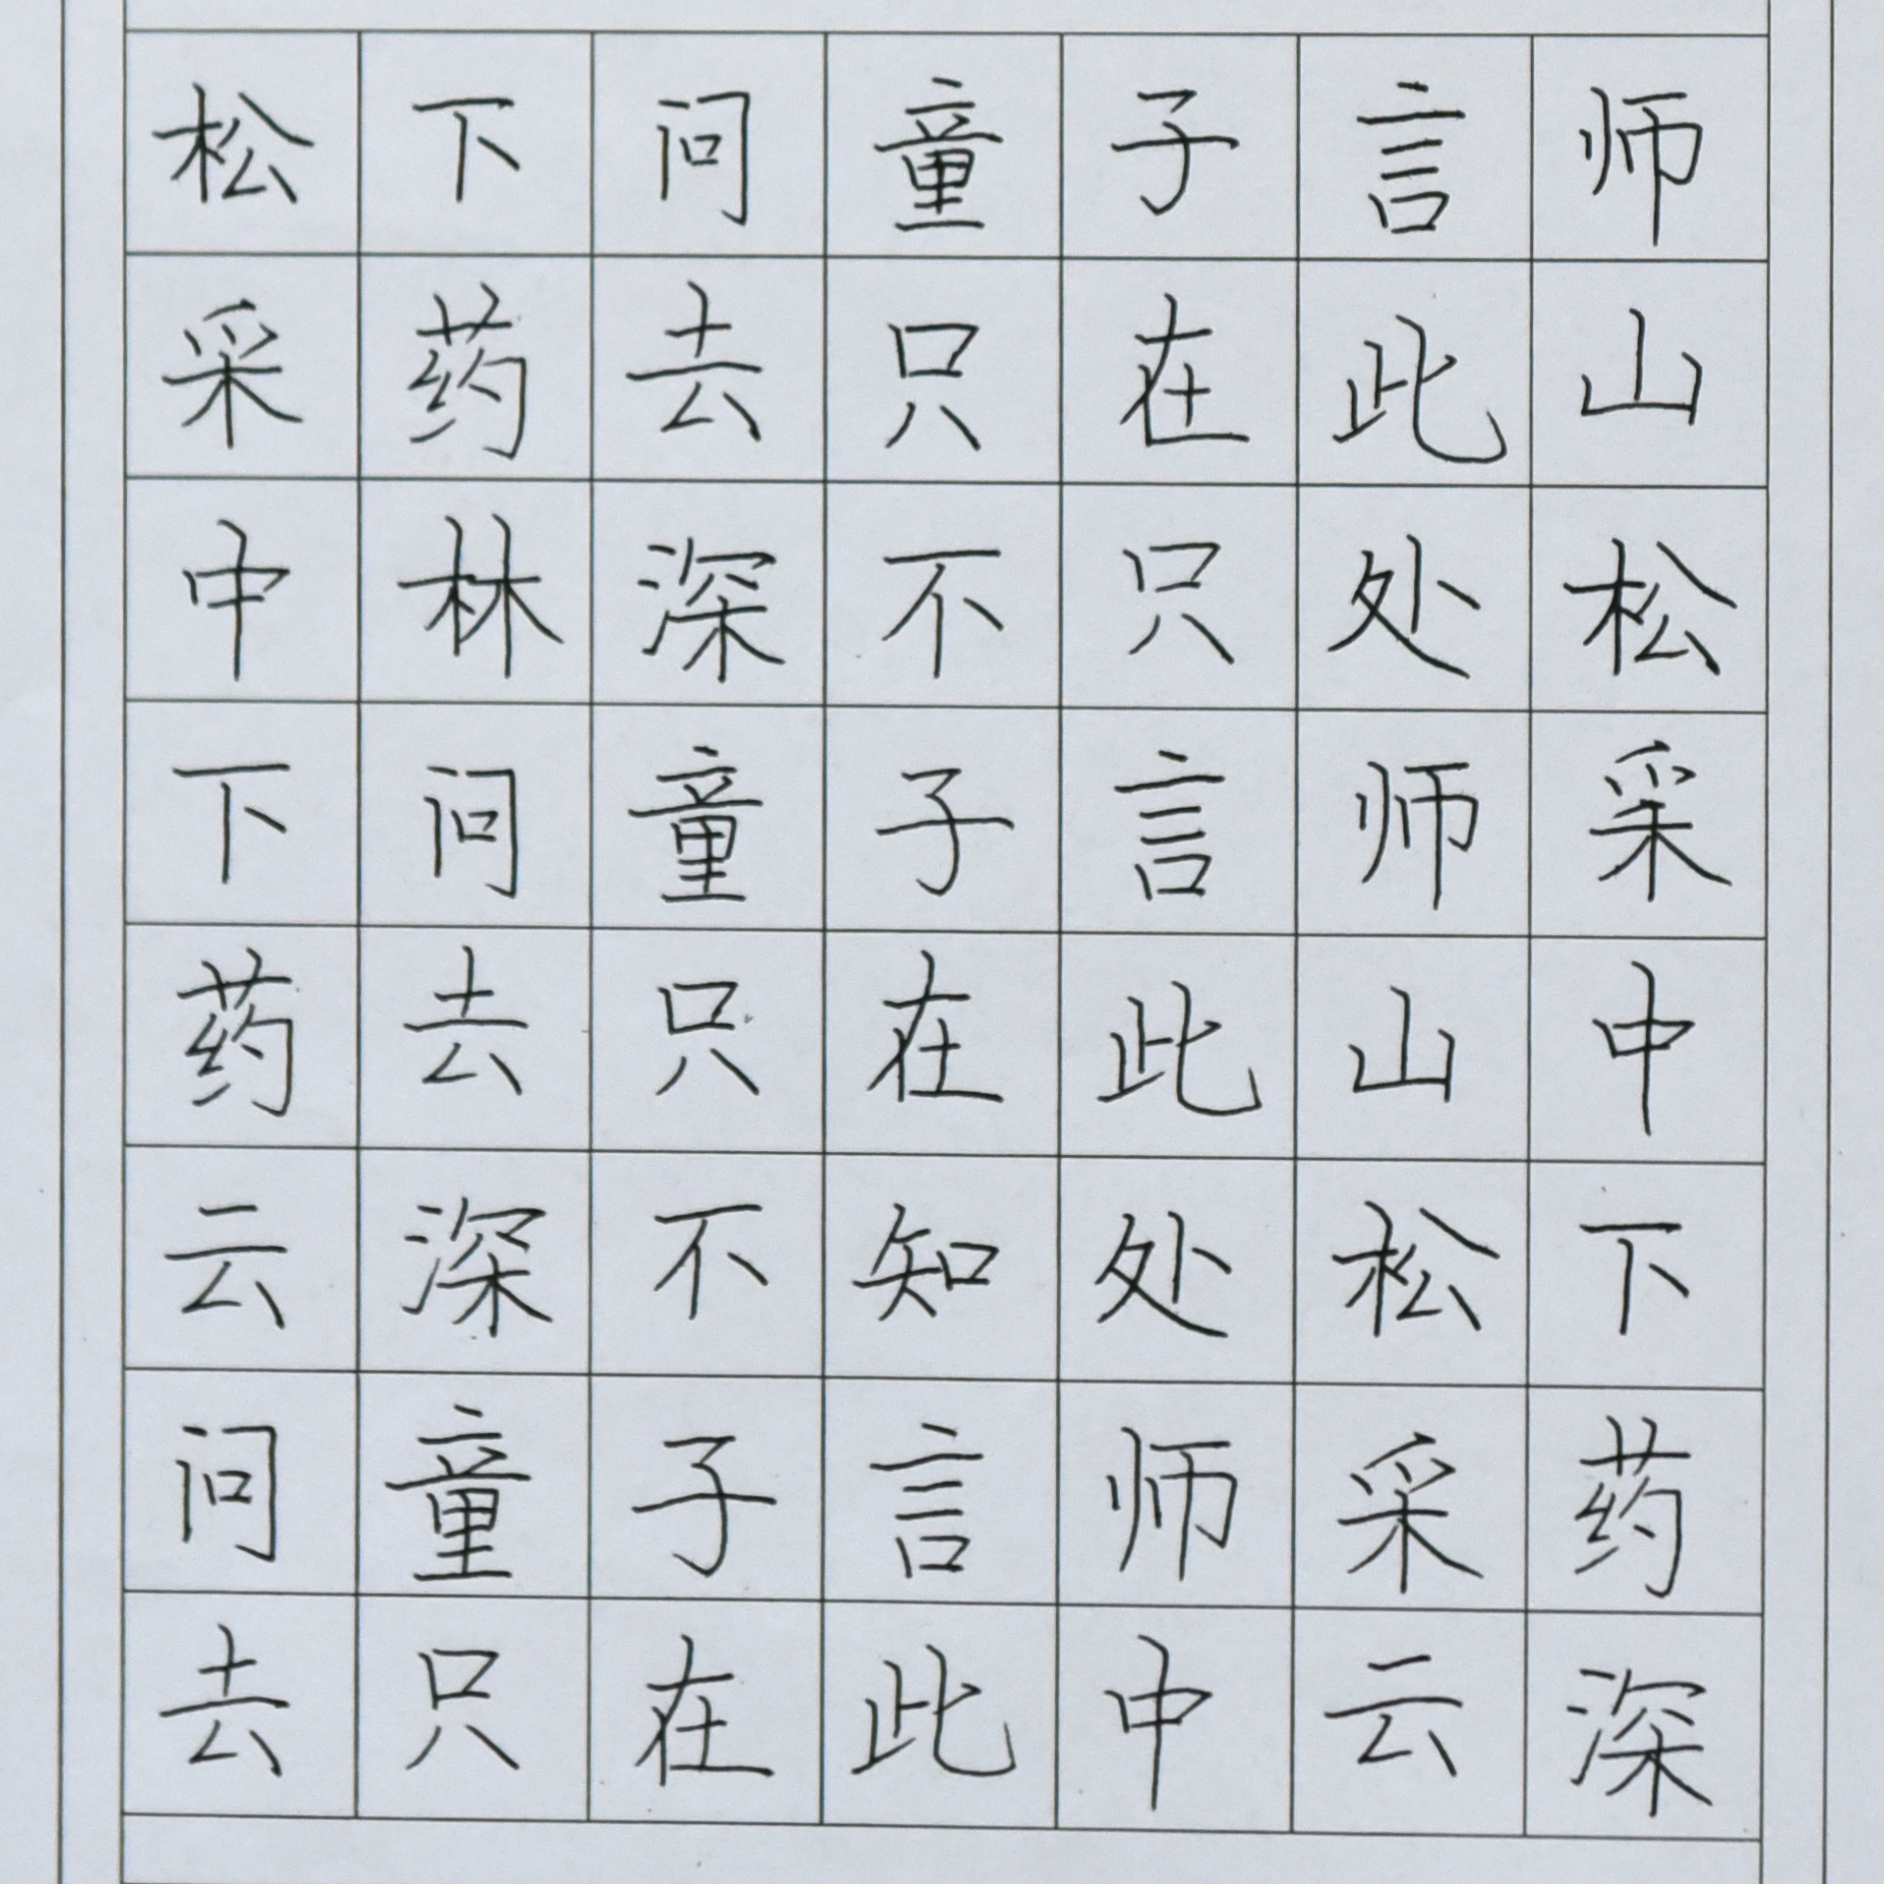 松下问童子言师
采药去只在此山
中林深不只处松
下问童子言师采
药去只在此山中
云深不知处松下
问童子言师采药
去只在此中云深